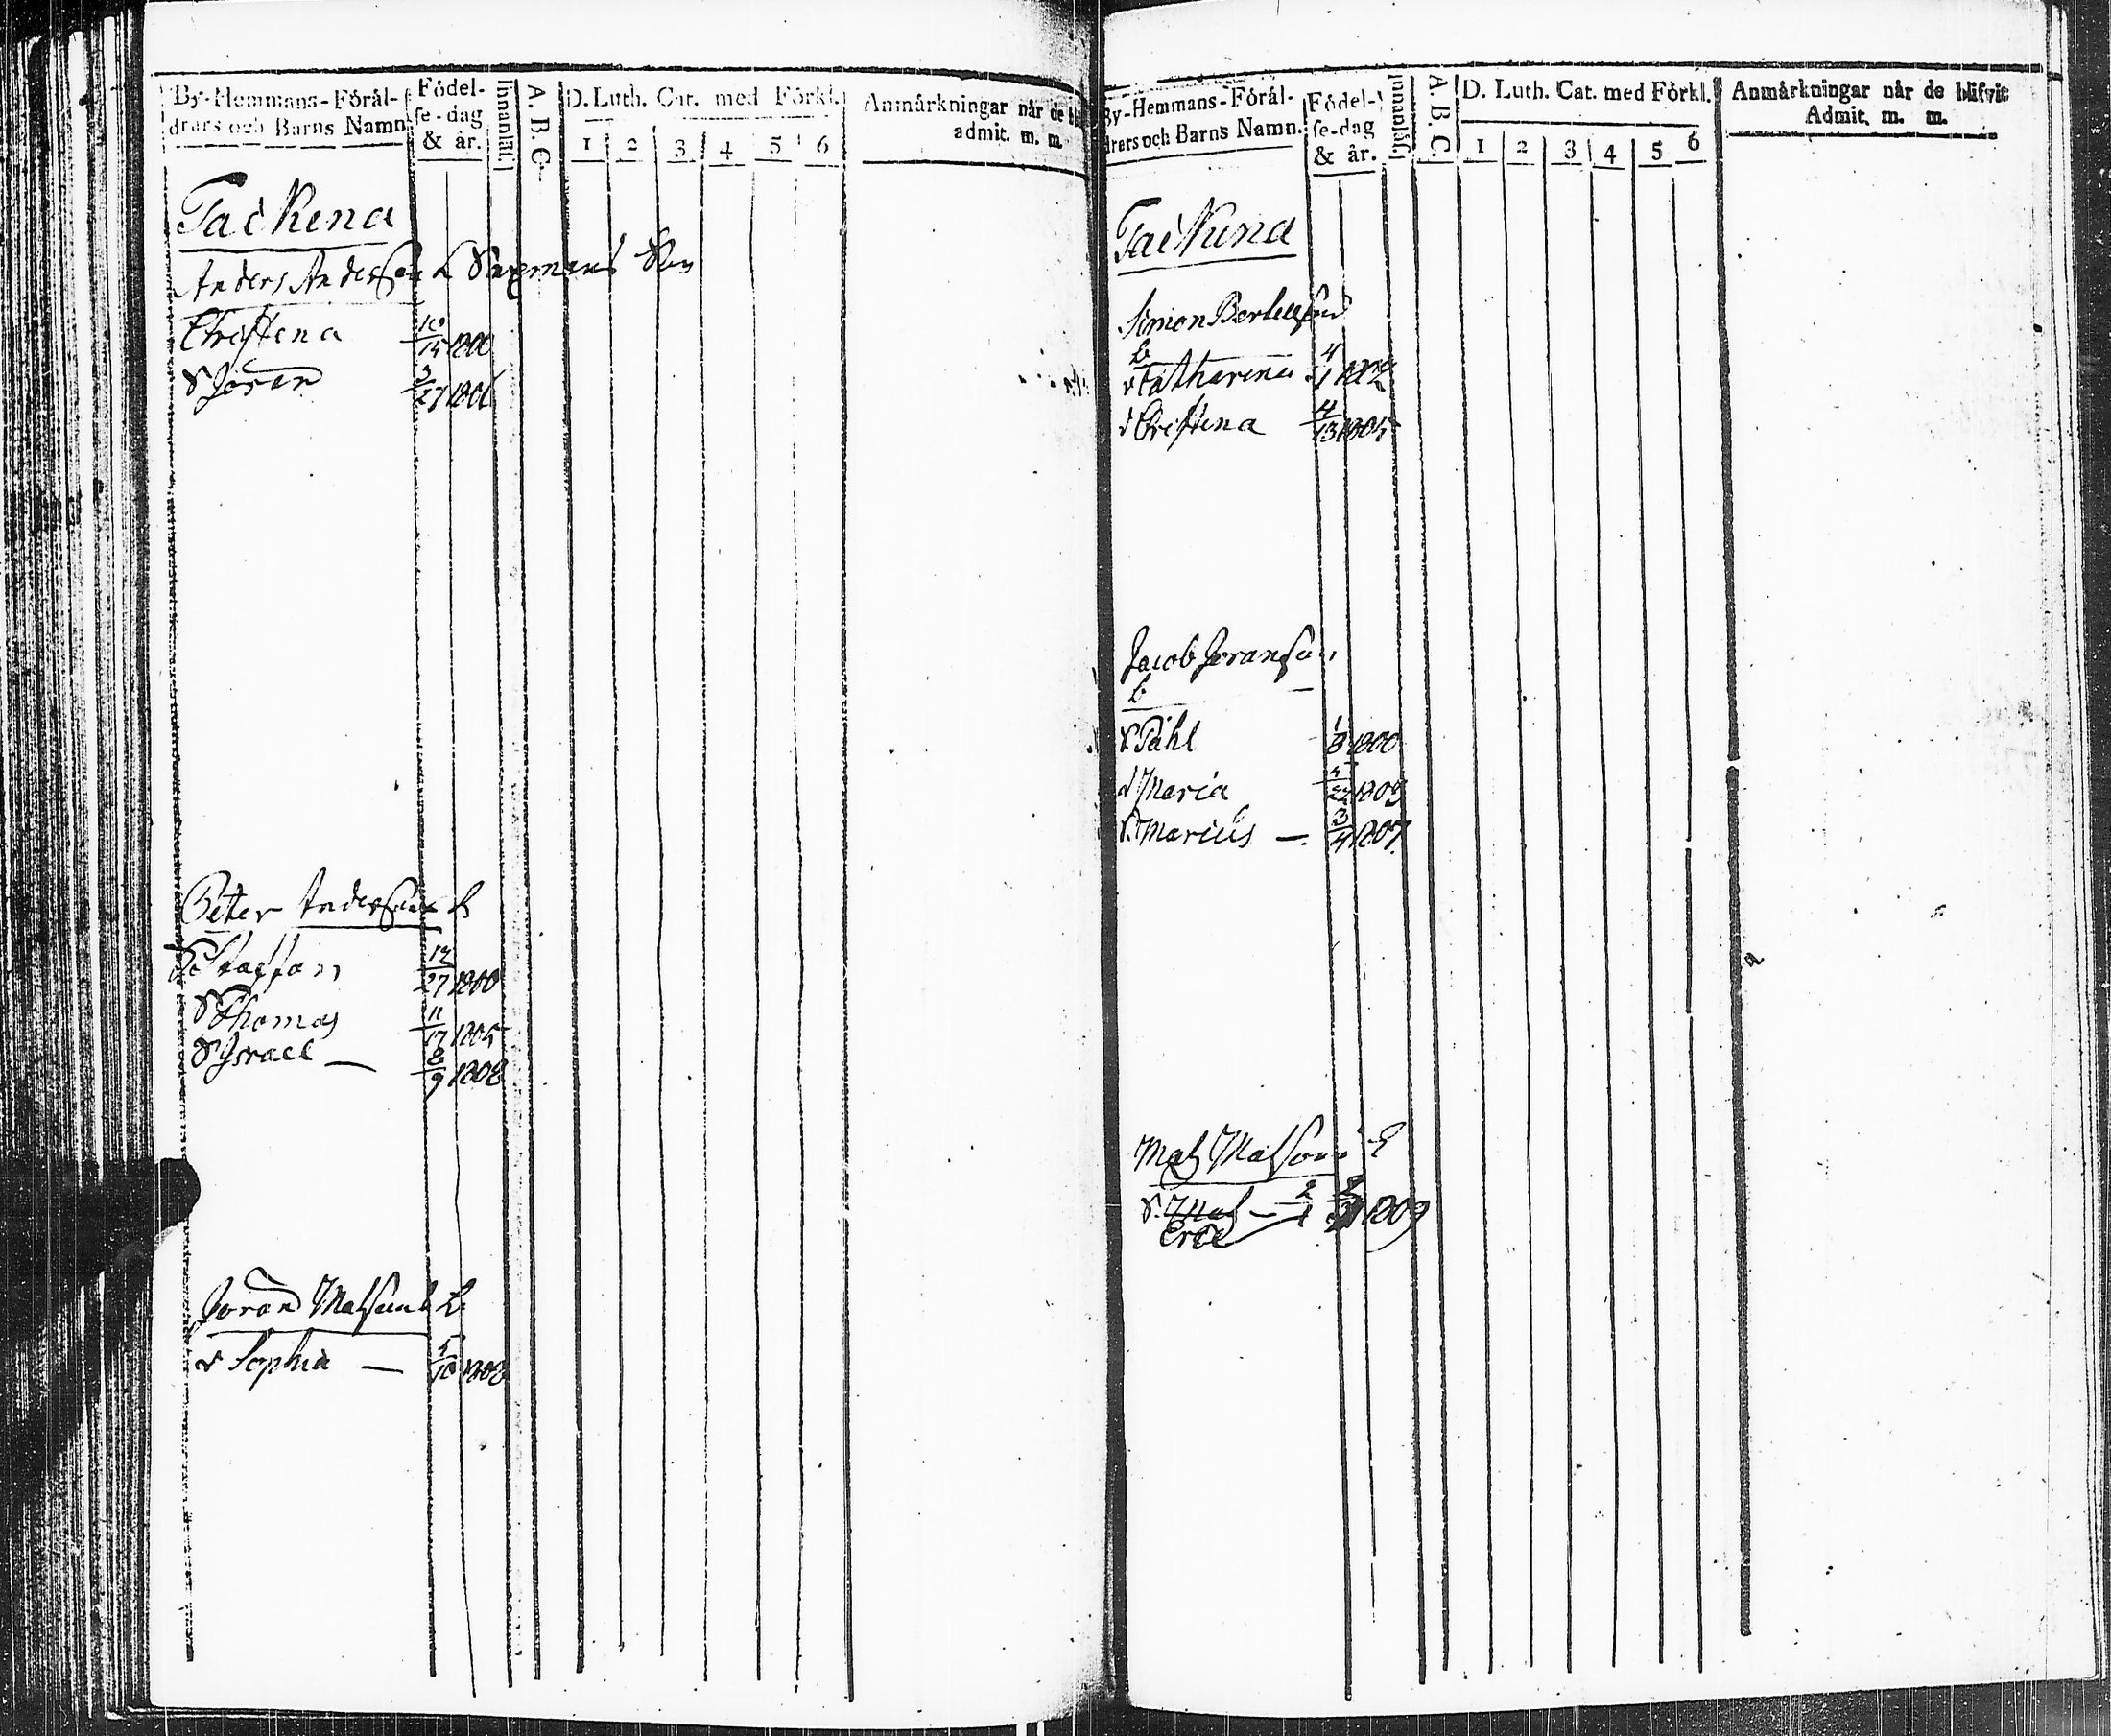 By-Hemmans-Förål-
drars och Barns Namn.
Födel-
se-dag
& år.
Innanläs.
A. B. C.
D. Luth. Cat. med Förkl.
1 2 3 4 5 6
Anmärkningar når de
admit. m. m.
Tackena
Anders Andersson
Christina 10/15 1800
S Jören
Peter Anderssons b
S Staffan 12/27 1800
S Thomas 11/17 1805
S Israel — 8/9 1808
Jöran Matssons b
d Sophia — 5/10 1808
By-Hemmans-Förål-
drars och Barns Namn.
Födel-
se-dag
& år.
Innanläs.
A. B. C.
D. Luth. Cat. med Förkl.
1 2 3 4 5 6
Anmärkningar når de blifvit
Admit. m. m.
Tackena
Simon Bertellssons
b
d Catharina 4/1 1802
d Christina 4/13 1805
Jacob Joranssons
b
S Påhl 1/8 1800
d Maria
S Marius — 3/4 1807
Mats Matssons
S. Mats — 1809
Eric